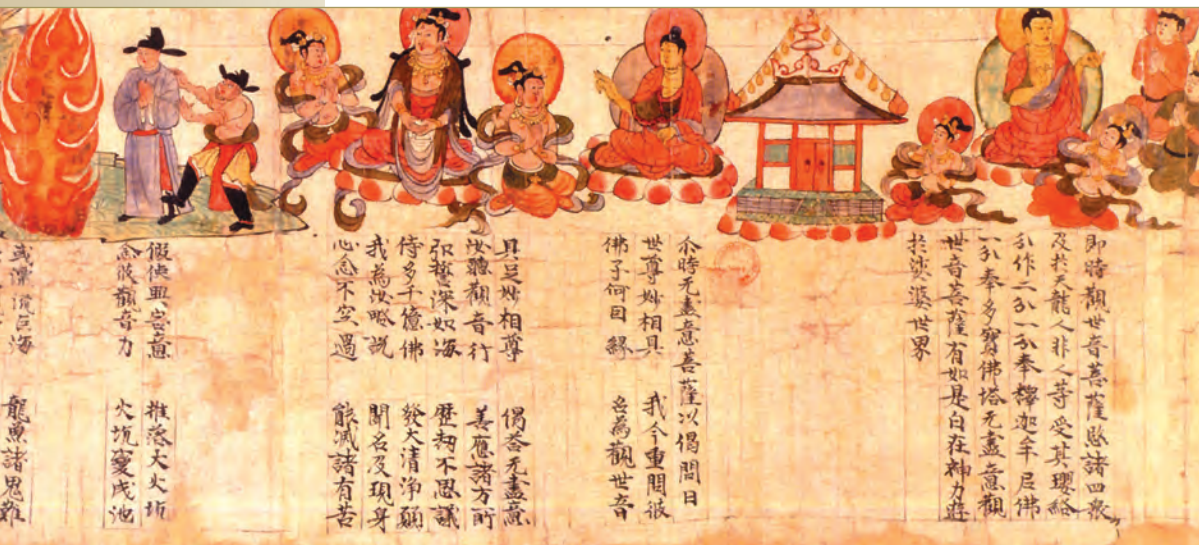 即時觀世音菩薩愍諸四衆
及扵天龍人非人等受其瓔珞
分作二分一分奉釋迦牟尼佛
一分奉多寶佛塔无盡意觀
世音菩薩有如是自在神力遊
扵娑婆世界
尒時无盡意菩薩以偈問曰
世尊妙相具 我今重問彼
佛子何因緣 名為觀世音
具足妙相尊 偈荅无盡意
汝聽觀音行 善應諸方所
弘誓深如海 歷劫不思議
侍多千億佛 發大清淨願
我為汝略說 聞名及現身
心念不空過 能滅諸有苦
假使興害意 推落大火坑
念彼觀音力 火坑變成池
或漂流巨海 龍魚諸鬼難